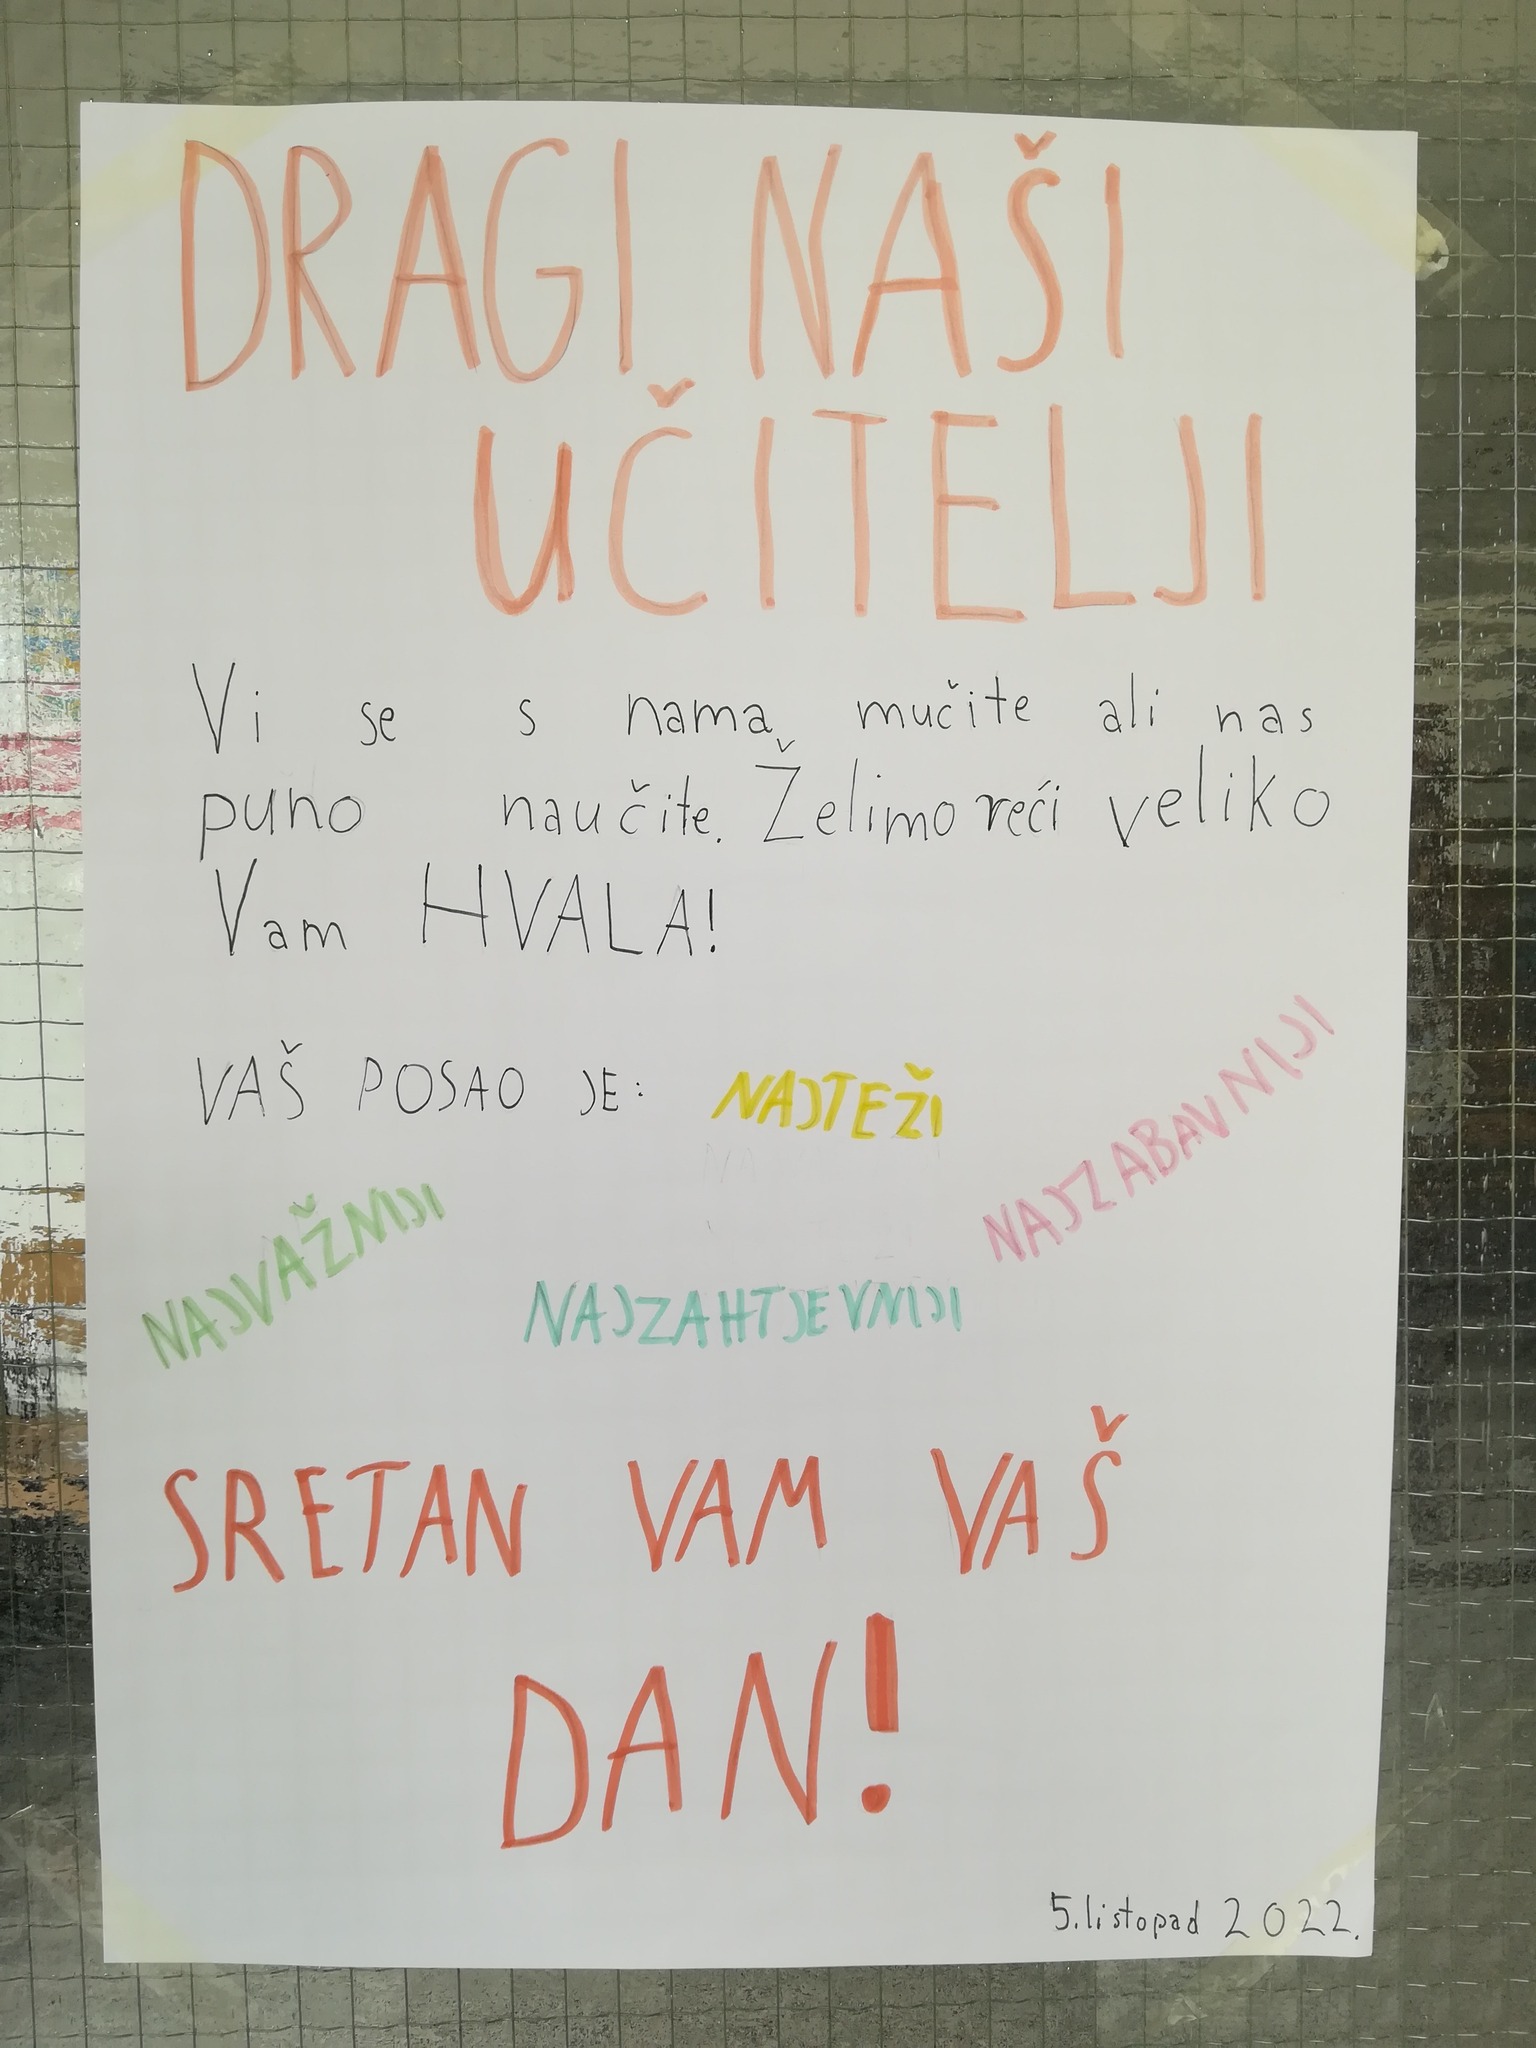 DRAGI NAŠI
UČITELJI
Vi se s nama mučite ali nas
puno naučite. Želimo reći veliko
Vam HVALA!
VAŠ POSAO JE: NAJTEŽI
NAJZABAVNIJI
NAJVAŽNIJI
NAJZAHTJEVNIJI
SRETAN VAM VAŠ
DAN!
5. listopad 2022.